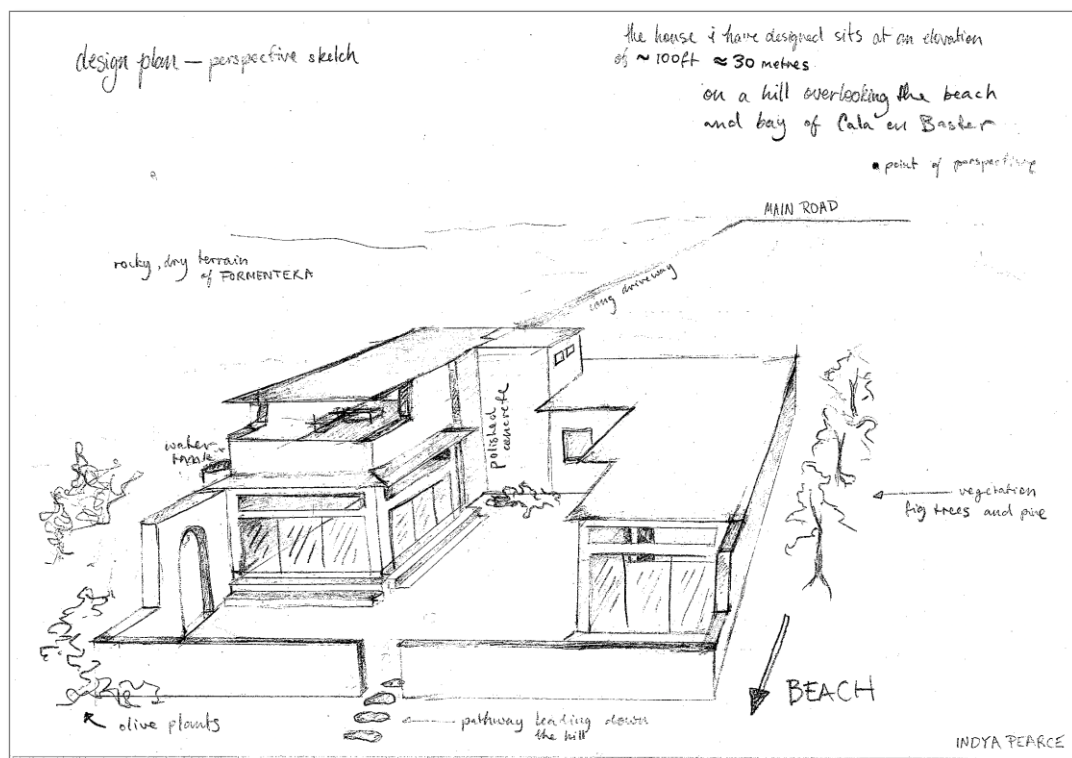 design plan – perspective sketch
the house i have designed sits at an elevation
of ~100ft ≈ 30 metres
on a hill overlooking the beach
and bay of Cala en Baster
• point of perspective
MAIN ROAD
rocky, dry terrain
of FORMENTERA
long driveway
polished
concrete
water
tank
vegetation
fig trees and pine
BEACH
olive plants
pathway leading down
the hill
INDYA PEARCE